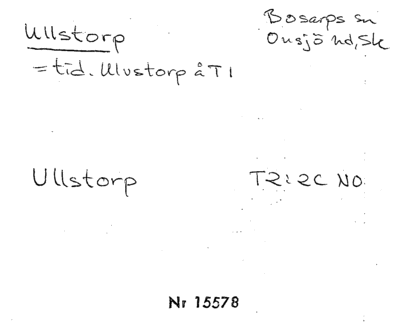 Ullstorp
Bosarps sn
Onsjö hd, Sk
= tid. Ulvstorp å T1
Ullstorp
T2:2C NO
Nr 15578